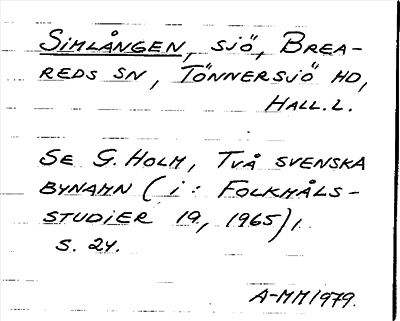 SIMLÅNGEN, SJÖ, BREA-
REDS SN, TÖNNERSJÖ HD,
HALL. L.
SE G. HOLM, TVÅ SVENSKA
BYNAMN (i: FOLKMÅLS-
STUDIER 19, 1965),
S. 24.
A-MM 1979.